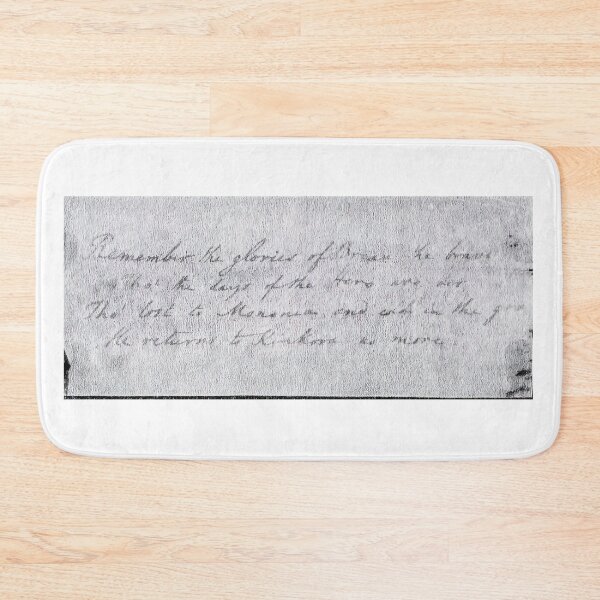 Remember the glories of Brien the brave
Tho' the days of the hero are o'er
Tho' lost to Mononia and cold in the gra
He returns to Kinkora no more